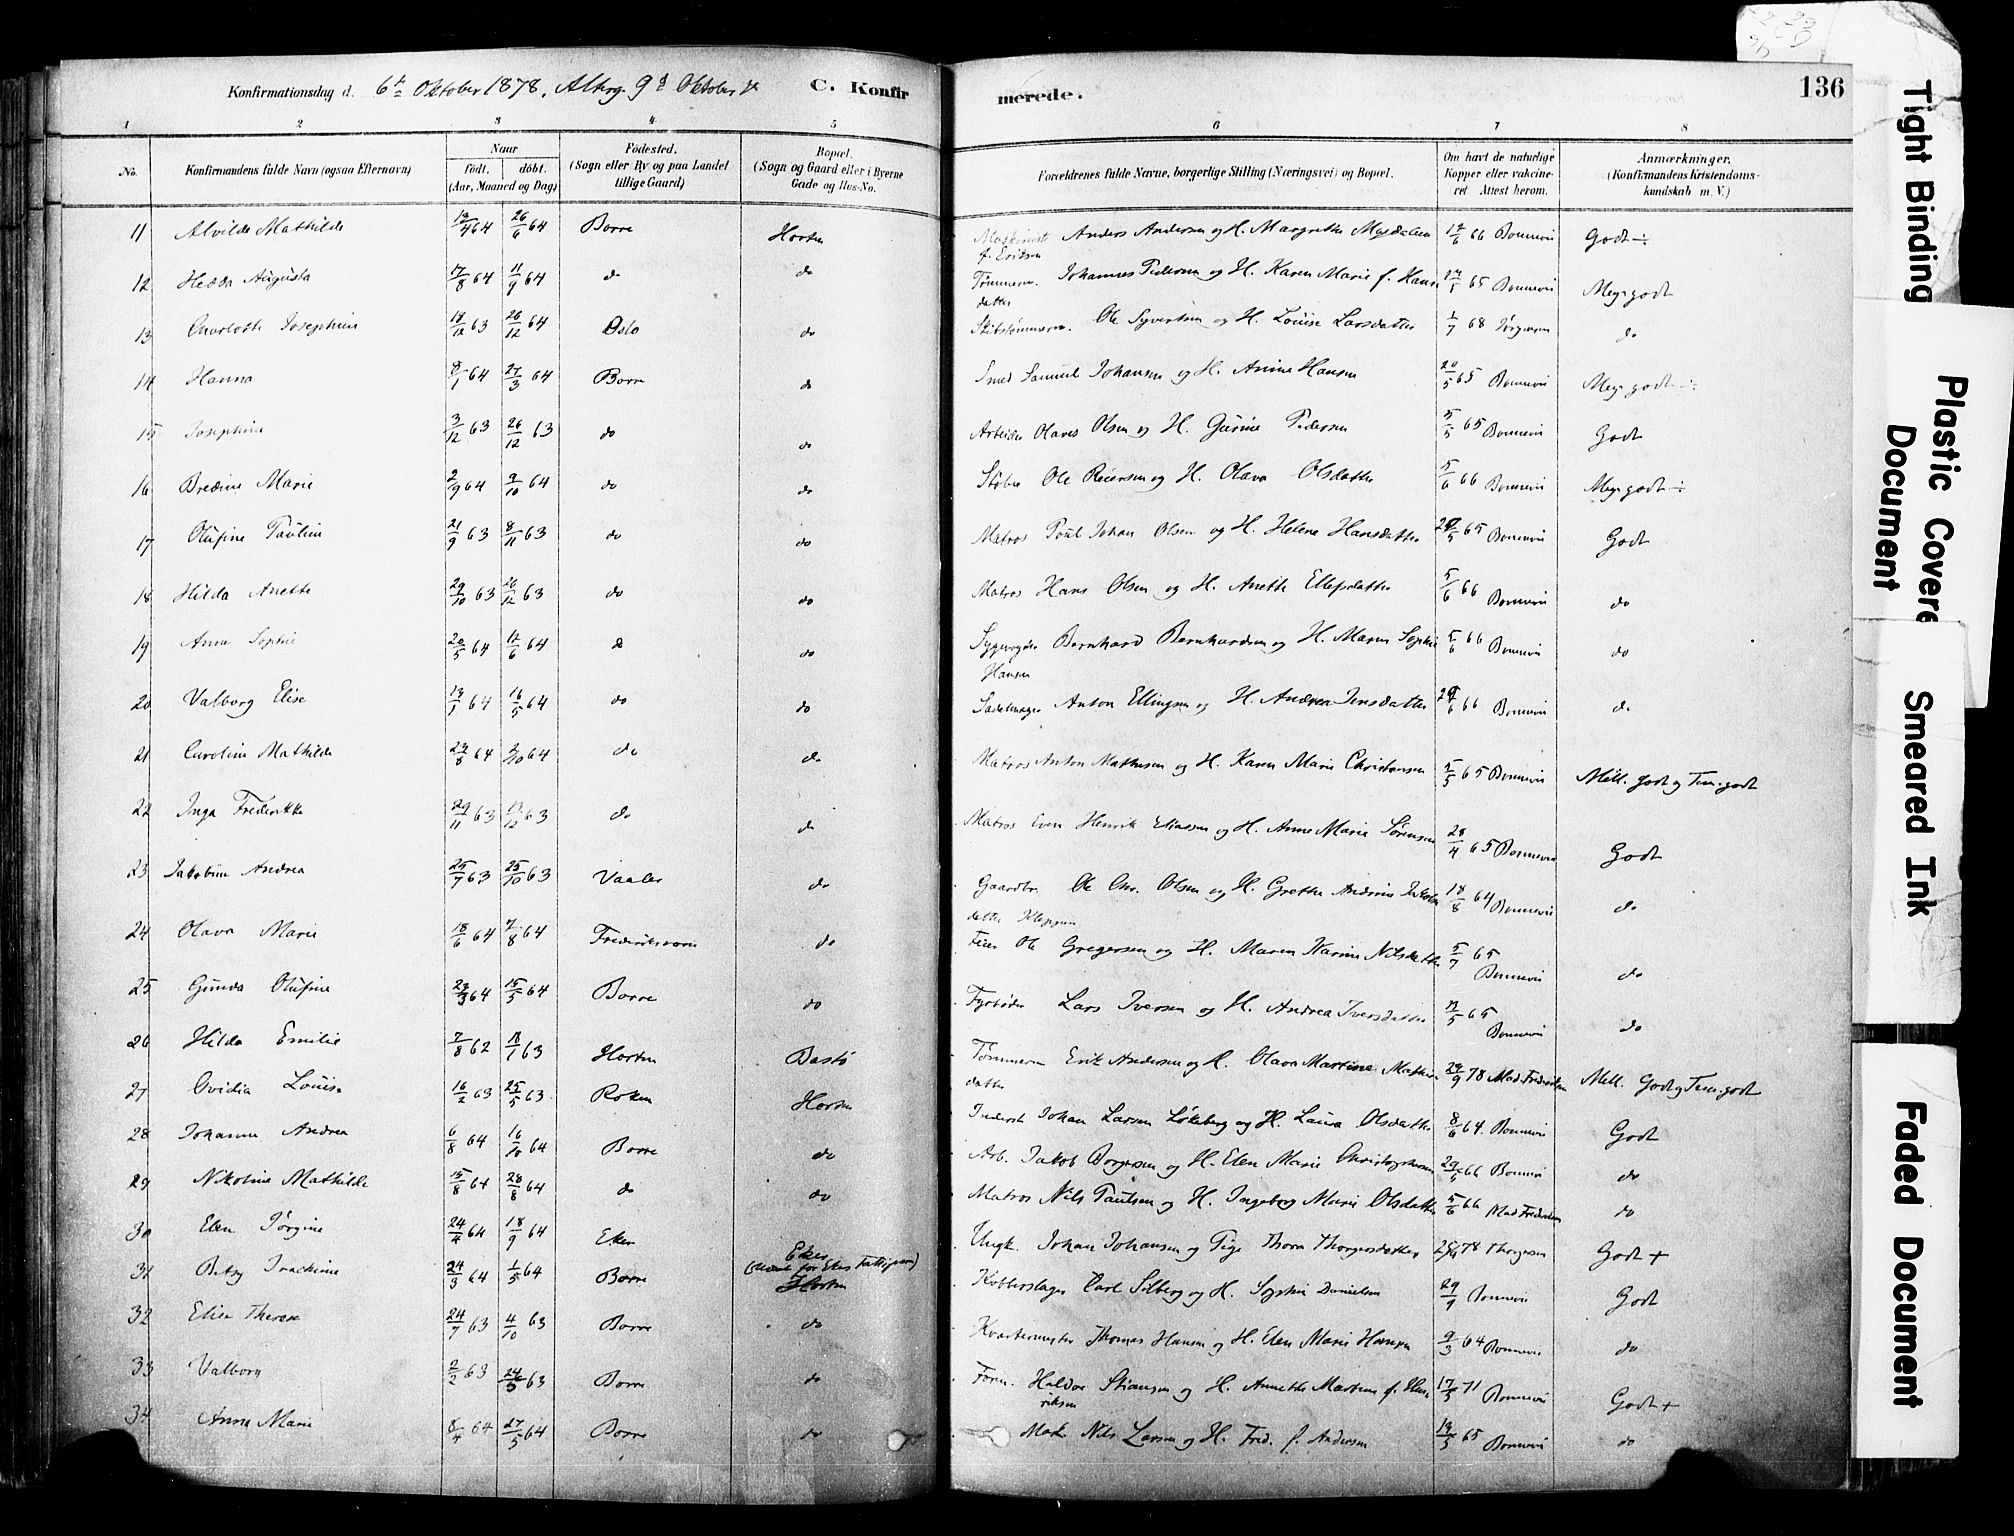 Konfirmationsdag d. 6te Oktober 1878. Alterg. 9d Oktober C. Konfir merede. 136
1 2 3 4 5 6 7 8
No. Konfirmandens fulde Navn (ogsaa Efternavn) Naar født. døbt. (Aar, Maaned og Dag) Fødested. (Sogn eller By og paa Landet tillige Gaard) Bopæl. (Sogn og Gaard eller i Byerne Gade og Hus-No. Forældrenes fulde Navne, borgerlige Stilling (Næringsvei) og Bopæl. Om havt de naturlige Kopper eller vakcineret Attest herom. Anmærkninger. (Konfirmandens Kristendomskundskab m. V.)
11 Alvilde Mathilde 13/4 64 26/6 64 Borre Horten Maskinist Anders Andersen og H. Margrethe Magdalena f. Eriksen 12/6 66 Bonnevie Godt ÷
12 Hedda Augusta 17/8 64 11/9 64 do do Tømmerm. Johannes Pedersen og H. Karen Marie f. Hans datter 65 Bonnevie Meg. godt
13 Charlotte Josephine 18/12 63 26/12 64 Oslo do Skibstømmerm. Ole Syvertsen og H. Louise Larsdatter 1/7 68 Jørgensen do
14 Hanna 8/1 64 27/3 64 Borre do Smed Samuel Johansen og H. Anine Hansen 20/5 65 Bonnevie Meg. godt ÷
15 Josephine 3/12 63 26/12 63 do do Arbeider Olaves Olsen og H. Gurine Pedersen 5/5 65 Bonnevie Godt
16 Bredine Marie 2/9 64 9/10 64 do do Støber Ole Reiersen og H. Olava Olsdatter 5/6 66 Bonnevie Meg. godt ÷
17 Olufine Pauline 21/9 63 8/11 63 do do Matros Poul Johan Olsen og H. Helene Hansdatter 65 Bonnevie Godt
18 Hilda Anette 29/10 63 26/12 63 do do Matros Hans Olsen og H. Anette Ellefsdatter 5/6 66 Bonnevie do
19 Anna Sophie 20/5 64 12/6 64 do do Bernhard Bernhardsen og H. Maren Sophie Hansen 5/6 66 Bonnevie do
20 Valborg Elise 13/1 64 16/5 64 do do Sadelmager Anton Ellingsen og H. Andrea Jensdatter 66 Bonnevie do
21 Caroline Mathilde 23/8 64 2/10 64 do do Matros Anton Mathisen og H. Karen Marie Christensen 5/5 65 Bonnevie Mell. godt og Tem. godt
22 Inga Frederikke 29/11 63 13/12 63 do do Matros Even Henrik Eliassen og H. Anne Marie Sørensen 28/4 65 Bonnevie Godt
23 Jakobine Andrea 25/7 63 25/10 63 Vaaler do Gaardbr. Ole Chr. Olsen og H. Grethe Andrine Jakobs datter Kleppen 18/8 64 Bonnevie do
24 Olava Marie 18/6 64 7/8 64 Frederiksværn do Ole Gregersen og H. Maren Karine Nilsdatter 5/7 65 Bonnevie do
25 Gunda Olufine 23/3 64 15/5 64 Borre do Fyrbøder Lars Iversen og H. Andrea Iversdatter 65 Bonnevie do
26 Hilda Emilie 7/8 62 18/1 63 Horten Bastø Tømmerm Erik Andersen og H. Olava Martine Mathis datter 78 Mad Fredriksen Mell. Godt og Tem. godt
27 Ovidia Louisa 16/2 63 25/5 63 Røken Horten Johan Larsen Løkeberg og H. Laura Olsdatter 8/6 64 Bonnevie Godt
28 Johanne Andrea 6/8 64 16/10 64 Borre do Arb. Jakob Borgersen og H. Elen Marie Christophersen 29/5 66 Bonnevie do
29 Nikoline Mathilde 15/8 64 28/8 64 do do Matros Nils Paulsen og H. Ingeborg Marie Olsdatter 5/6 66 Mad Fredriksen do
30 Elen Jørgine 24/4 64 18/9 64 Eker Eker (Fattigvæsen) Ungk. Johan Johansen og Pige Thora Thorgersdatter 78 Thorgersen Godt +
31 Betsy Joachime 24/3 64 1/5 64 Borre Horten Kobberslager Carl Silberg og H. Sophie Danielsen 29/9 Bonnevie Godt
32 Elise Therese 24/7 63 4/10 63 Borre do Kvartermester Thomas Hansen og H. Elen Marie Hansen 9/3 64 Bonnevie do
33 Valborg 2/2 63 24/5 63 Borre do Form. Haldor Stiansen og H. Annette Martine f. Hen riksen 17/5 71 Bonnevie Godt +
34 Anna Marie 8/4 64 27/5 64 Borre do Matr. Nils Larsen og H. Fred. f. Andersen 19/5 65 Bonnevie do
Tight Binding
Plastic Covere
Document
Smeared Ink
Faded Document